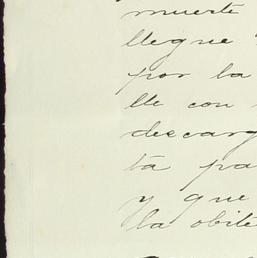 muerte
llegue
por la
lle con
descarg
ta pa
y que
la obite